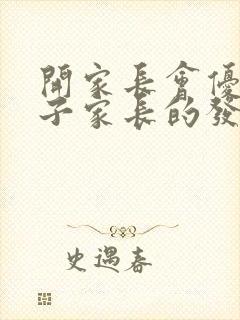 開家長會優
子家長的發
史遇春